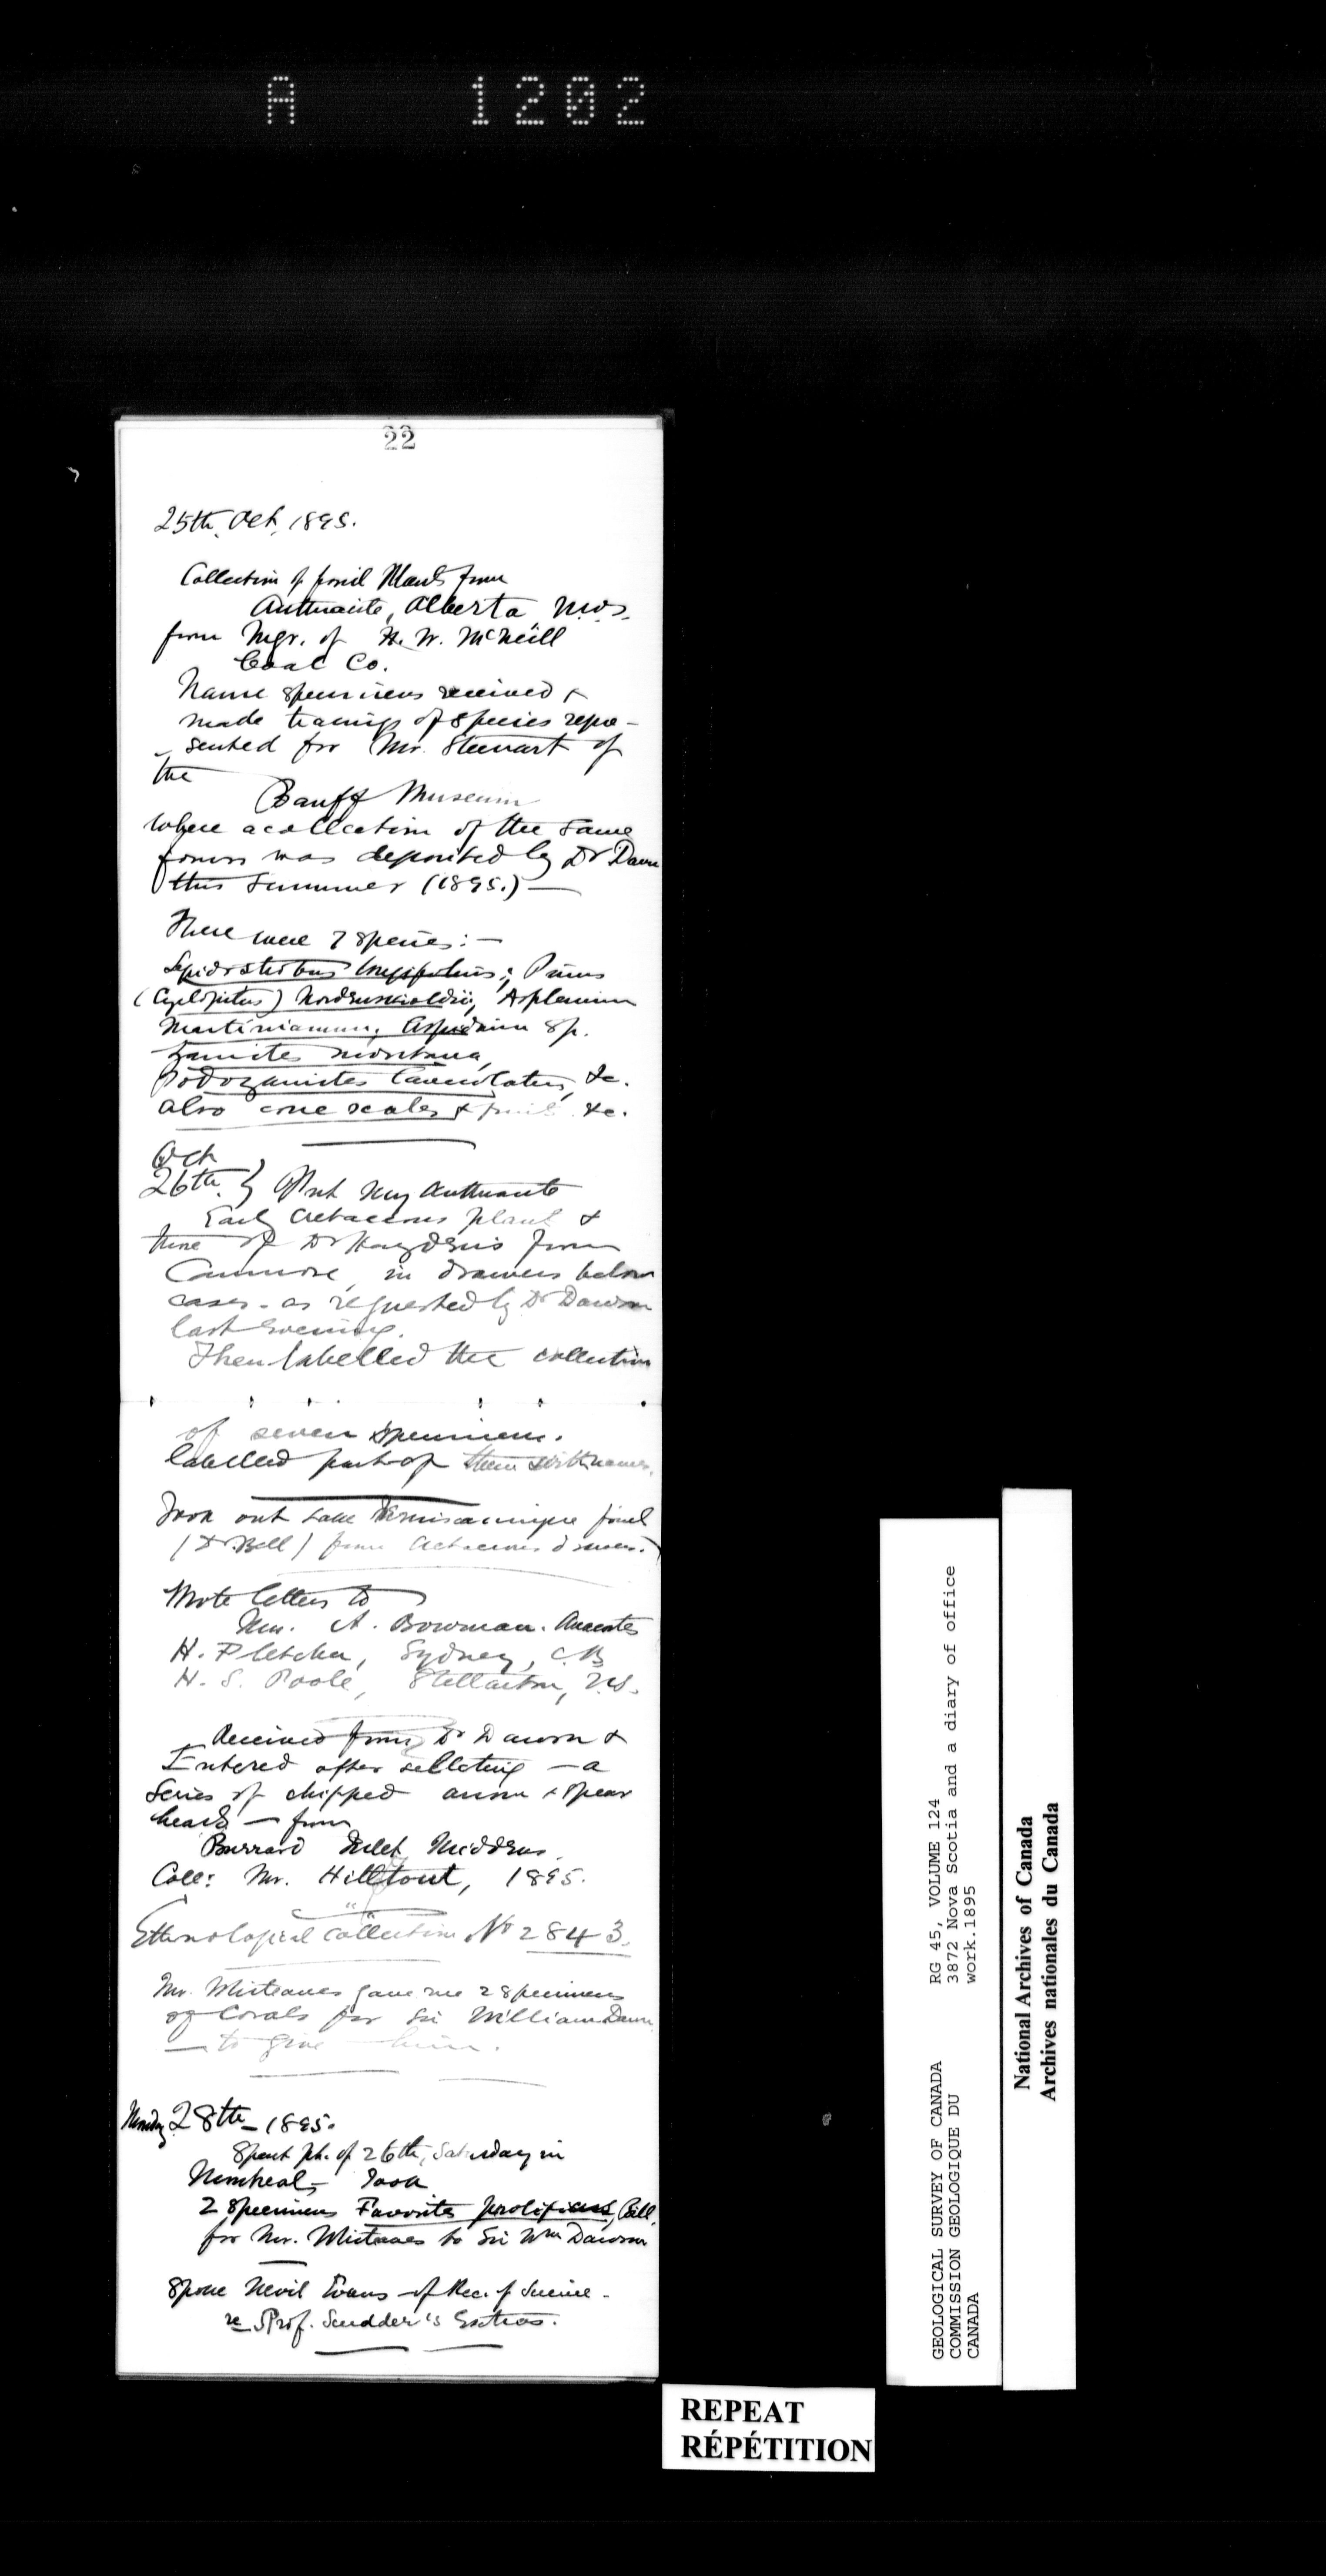 A 1202
22
25th. Oct. 1895.
Collection of fossil Plants from
Anthracite, Alberta N.W.T.
from Mgr. of H. W. McNeill
Coal Co.
Name specimens received &
made tracings of species repre-
- sented for Mr. Stewart of
the
Banff Museum
where a collection of the same
forms was deposited by Dr Daws
this Summer (1895.) —
There were 7 species: —
Lepidostrobus longifolius; Pinus
(Cyclopitus) Nordenskioldii, Asplenium
Martinianum, Aspidium sp.
Zamites montana,
Podozamites lanceolatus, &c.
also cone scales & fruit &c.
Oct
26th. } Put my Anthracite
Early Cretaceous plants &
those of Dr Hayden's from
Canmore, in drawers below
cases - as requested by Dr Dawson
last evening.
Then labelled the collection
of seven specimens.
labelled part of them with names.
Took out Lake Temiscamingue fossil
(Dr. Bell) from Cretaceous drawer.)
Wrote letters to
A. Bowman. Anacortes
H. Fletcher, Sydney, C.B
H. S. Poole, Stellarton, N.S.
Received from Dr Dawson &
Entered after selecting — a
Series of chipped arrow & spear
heads — from
Burrard Inlet Middens.
Coll: Mr. Hill tout, 1895.
Ethnological Collection No 2843.
Mr. Whiteaves gave me 2 specimens
of Corals for Sir William Daws
— to give him.
Monday 28th - 1895.
Spent pt. of 26th, Saturday in
Montreal, - Took
2 specimens Favosites prolificus, Bill.
for Mr. Whiteaves to Sir Wm Dawson
Spoke Nevil Evans of Rec. of Science -
re Prof. Scudder's Extras.
REPEAT
RÉPÉTITION
GEOLOGICAL SURVEY OF CANADA
COMMISSION GEOLOGIQUE DU
CANADA
RG 45, VOLUME 124
3872 Nova Scotia and a diary of office
work.1895
National Archives of Canada
Archives nationales du Canada